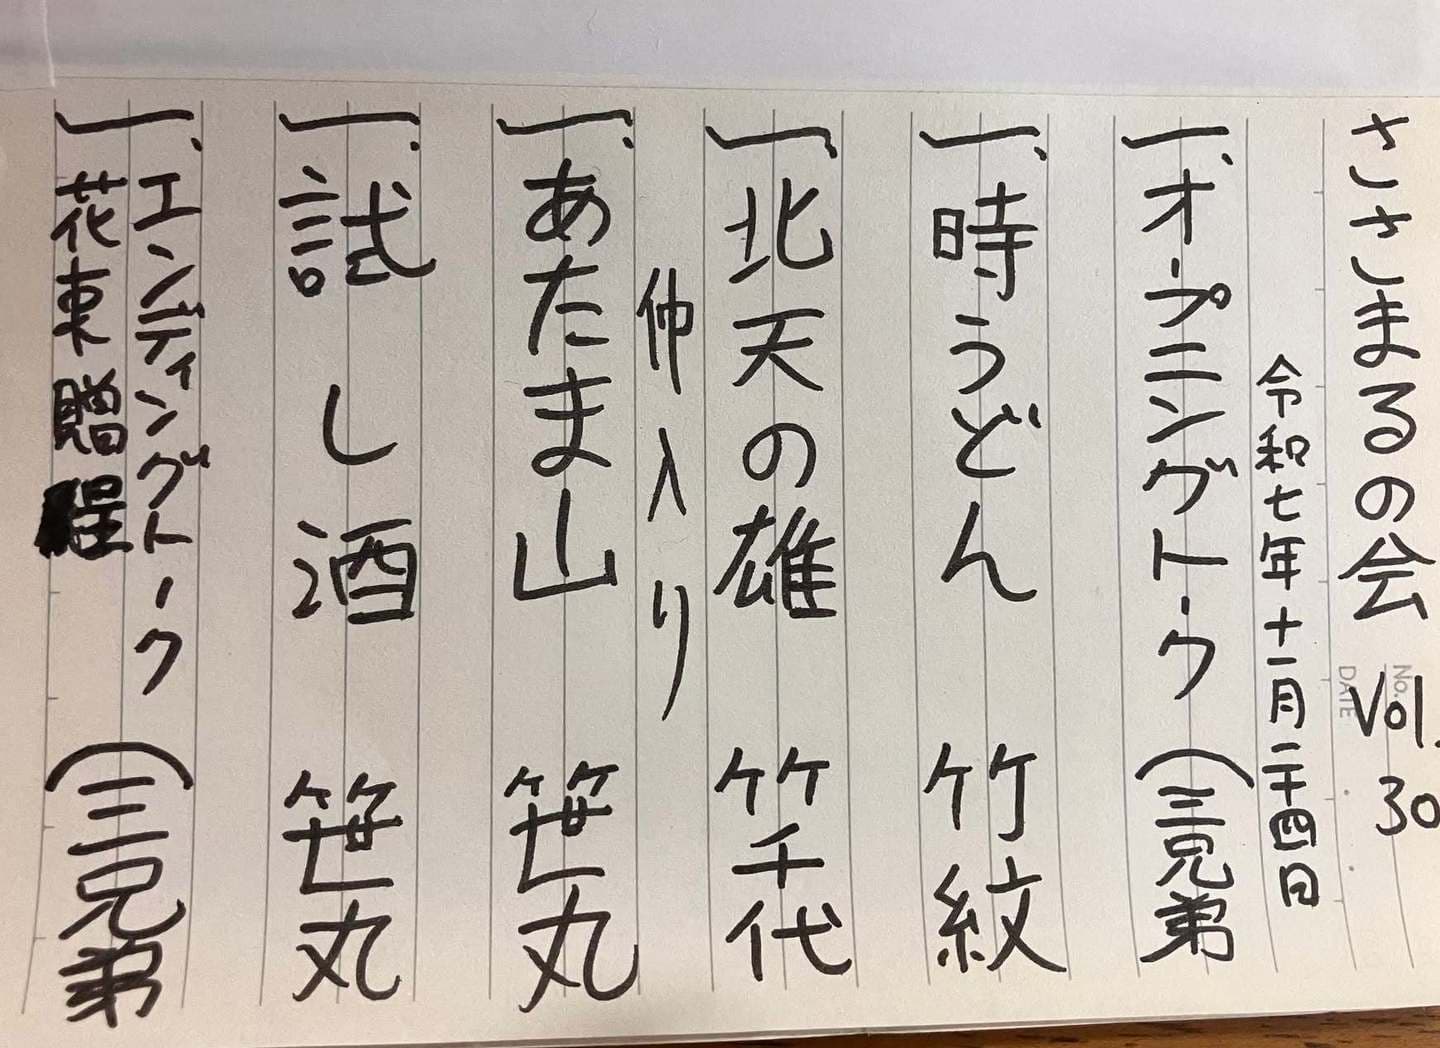 ささまるの会 Vol.30
令和七年十一月二十四日
一、オープニングトーク（三兄弟
一、時うどん 竹紋
一、北天の雄 竹千代
仲入り
一、あたま山 笹丸
一、試し酒 笹丸
一、エンディングトーク（三兄弟
花束贈呈
No.
DATE